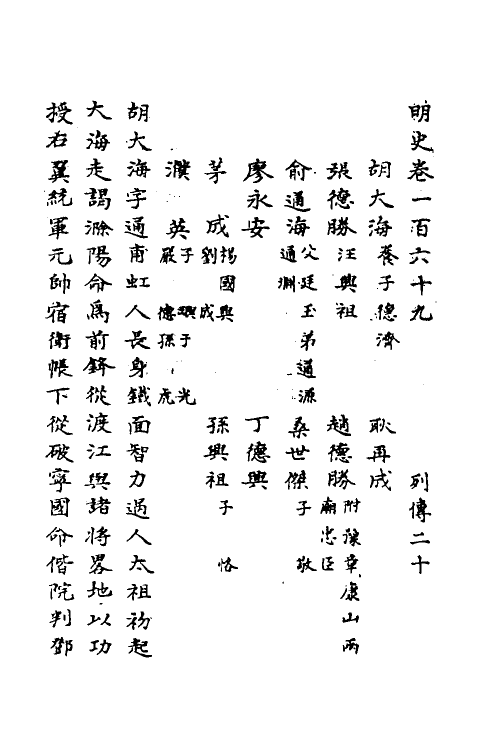 明史卷一百六十九 列傳二十
胡大海 養子德濟 耿再成
張德勝 汪興祖 趙德勝 附豫章康山兩廟忠臣
俞通海 父廷玉 弟通源 通淵 桑世傑 子 敬
廖永安 丁德興
茅 成 楊國興 劉 成 孫興祖 子 恪
濮 英 子 璵 子 光 嚴 德 孫 虎
胡大海字通甫虹人長身鐵面智力過人太祖初起
大海走謁滁陽命為前鋒從渡江與諸將畧地以功
授右翼統軍元帥宿衛帳下從破寧國命偕院判鄧